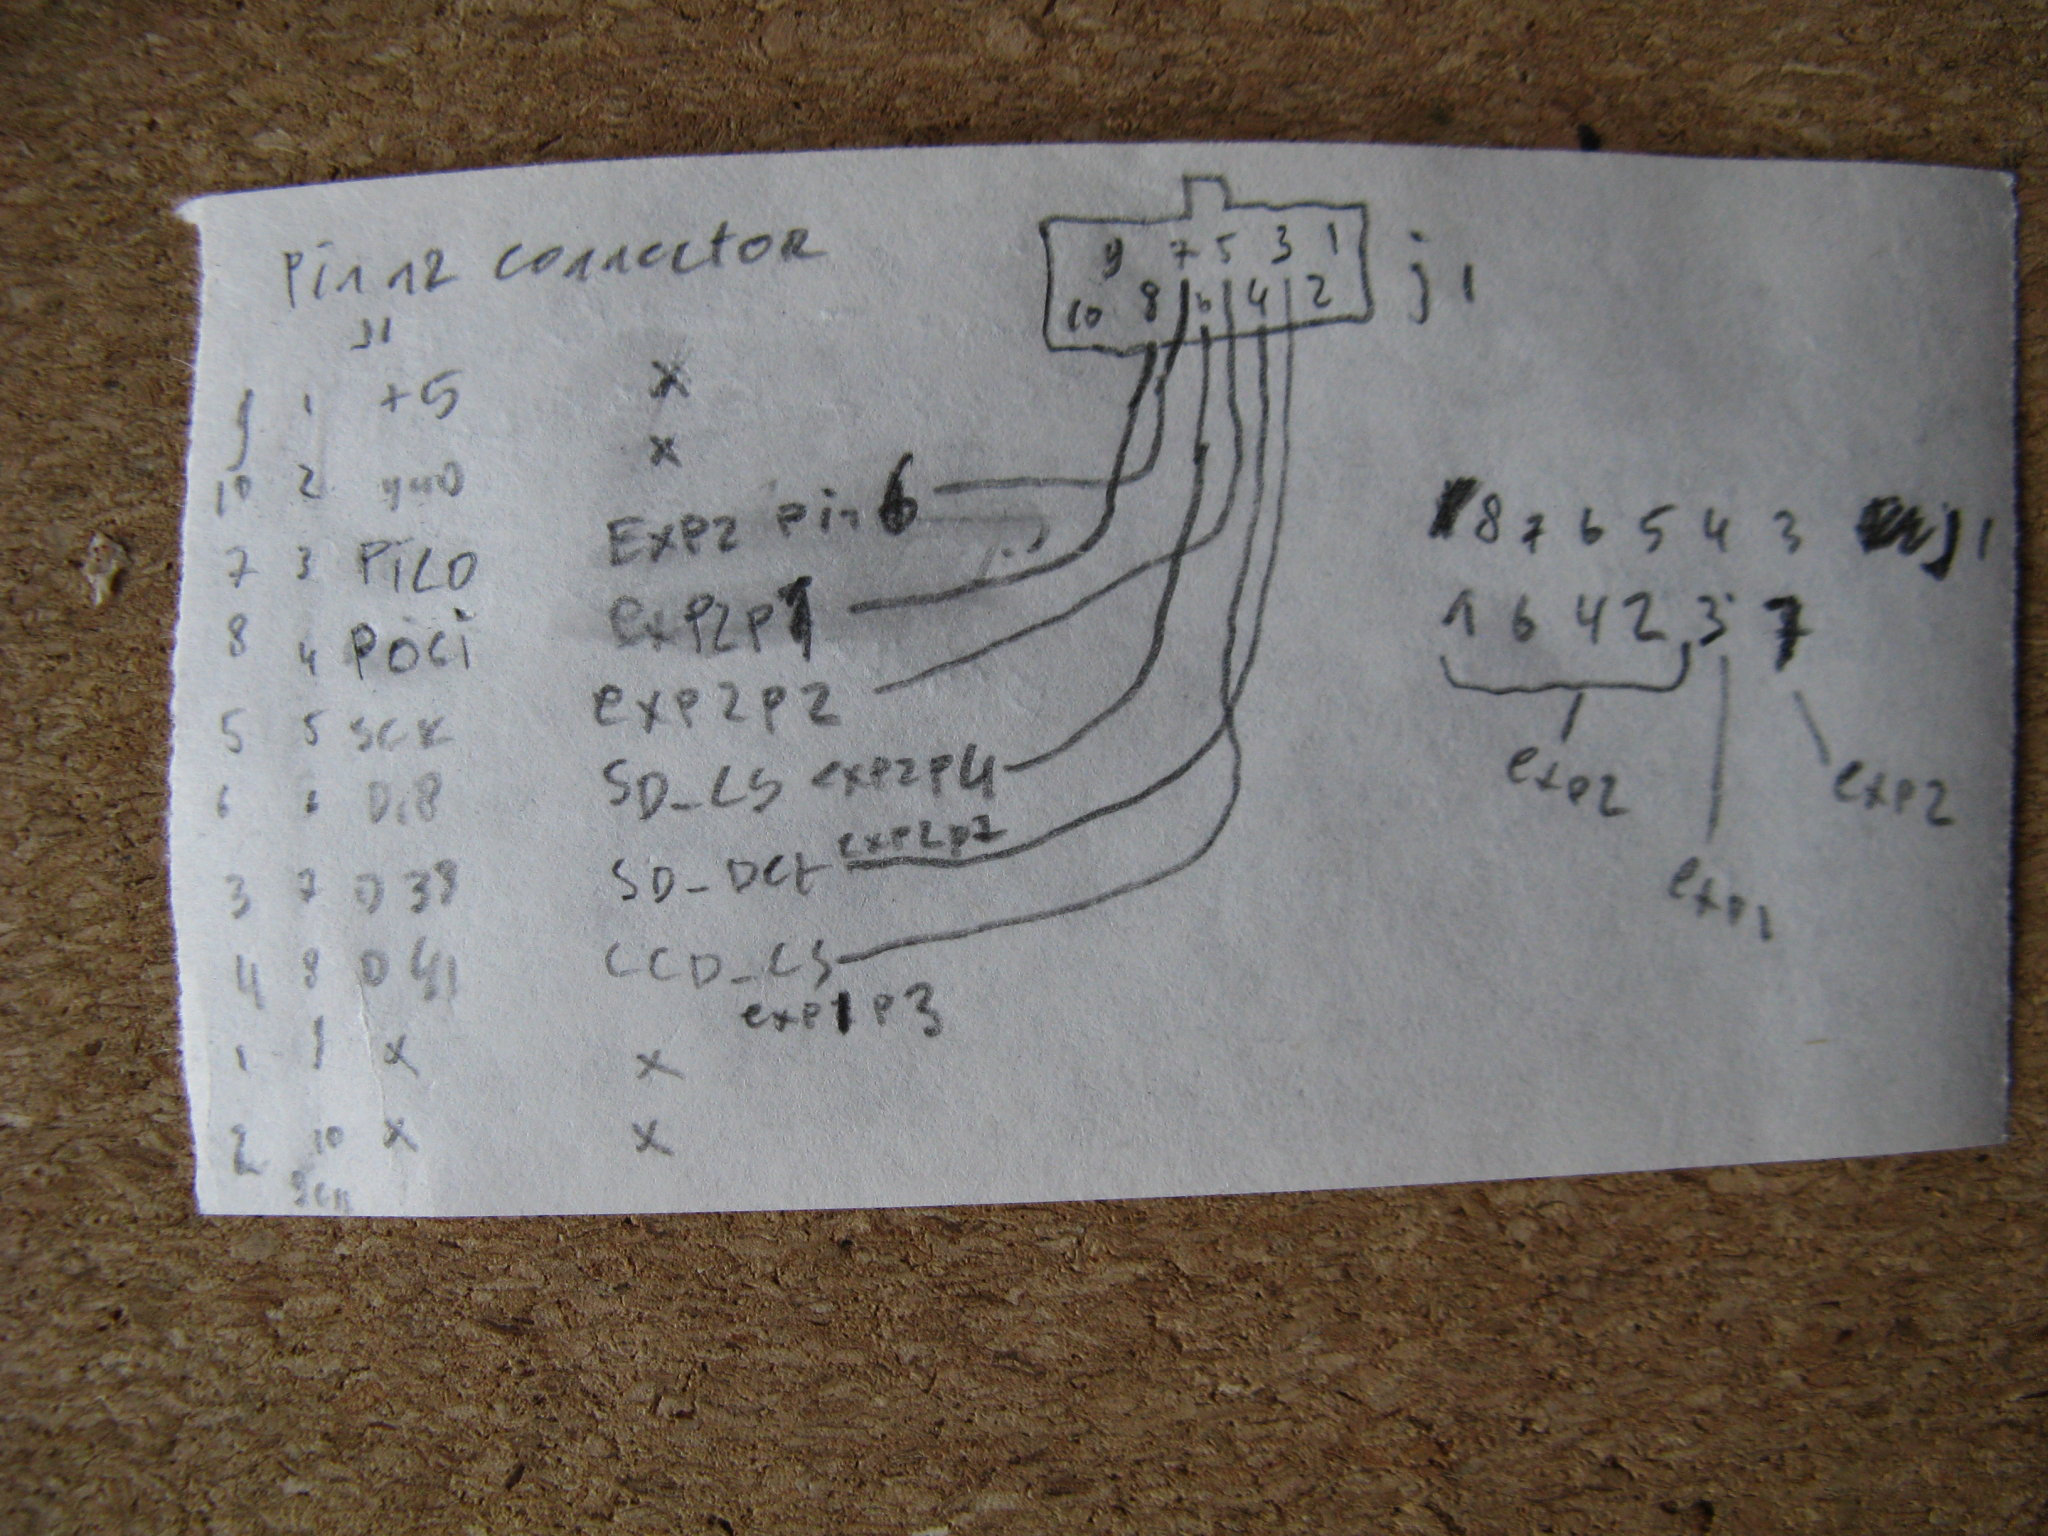 Pin nr connector
J1
9 7 5 3 1
10 8 6 4 2
j1
9 1 +5 x
10 2 gnd x
7 3 PILO Exp2 pin 6
8 4 POCi exp2p1
5 5 SCK exp2p2
6 6 D.8 SD_CS exp2p4
3 7 D 38 SD_Det exp2p7
4 8 D 41 LCD_CS
exp1p3
1 9 x x
2 10 x x
8 7 6 5 4 3 j1
1 6 4 2 3 7
exp2
exp2
exp1